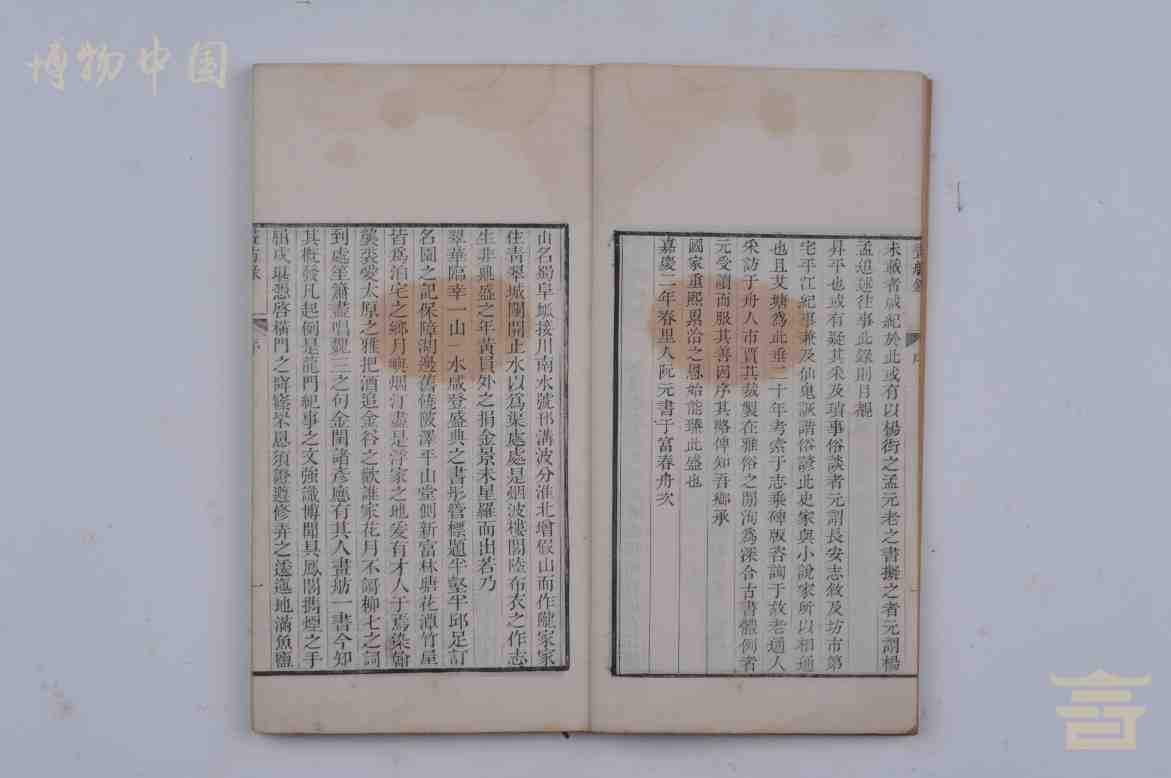 博物中国
畫舫錄
序
未載者咸紀於此或有以楊衒之孟元老之書擬之者元謂楊
孟追述往事此錄則目覩
昇平也或有疑其采及瑣事俗談者元謂長安志敘及坊市第
宅平江紀事兼及仙鬼詼諧俗諺此史家與小說家所以相通
也且艾塘為此垂二十年考索于志乘碑版咨詢于故老通人
采訪于舟人市賈其裁製在雅俗之間洵為深合古書體例者
元受讀而服其善因序其略俾知吾鄉承
國家重熙累洽之恩始能臻此盛也
嘉慶二年春里人阮元書于富春舟次
山名蜀阜脈接川南水號邗溝波分淮北增假山而作隴家家
住青翠城闉開止水以為渠處處是烟波樓閣陸布衣之作志
生非鼎盛之年黃員外之捐金景未星羅而出若乃
翠華臨幸一山一水咸登盛典之書彤管標題半壑半邱足訂
名園之記保障湖邊舊倚陂澤平山堂側新富林塘花潭竹屋
皆為泊宅之鄉月嶼烟汀盡是浮家之地爰有才人于焉染翰
裘愛太原之雅把酒追金谷之歡誰家花月不歌柳七之詞
到處笙簫盡唱魏三之句金閨諸彥應有其人畫舫一書今知
其概發凡起例是龍門紀事之文強識博聞具鳳閣攡煙之手
輯成堪慰啓橫門之寂寥榮悳須證遵修弄之逶迤地滿魚鹽
畫舫錄
序
一